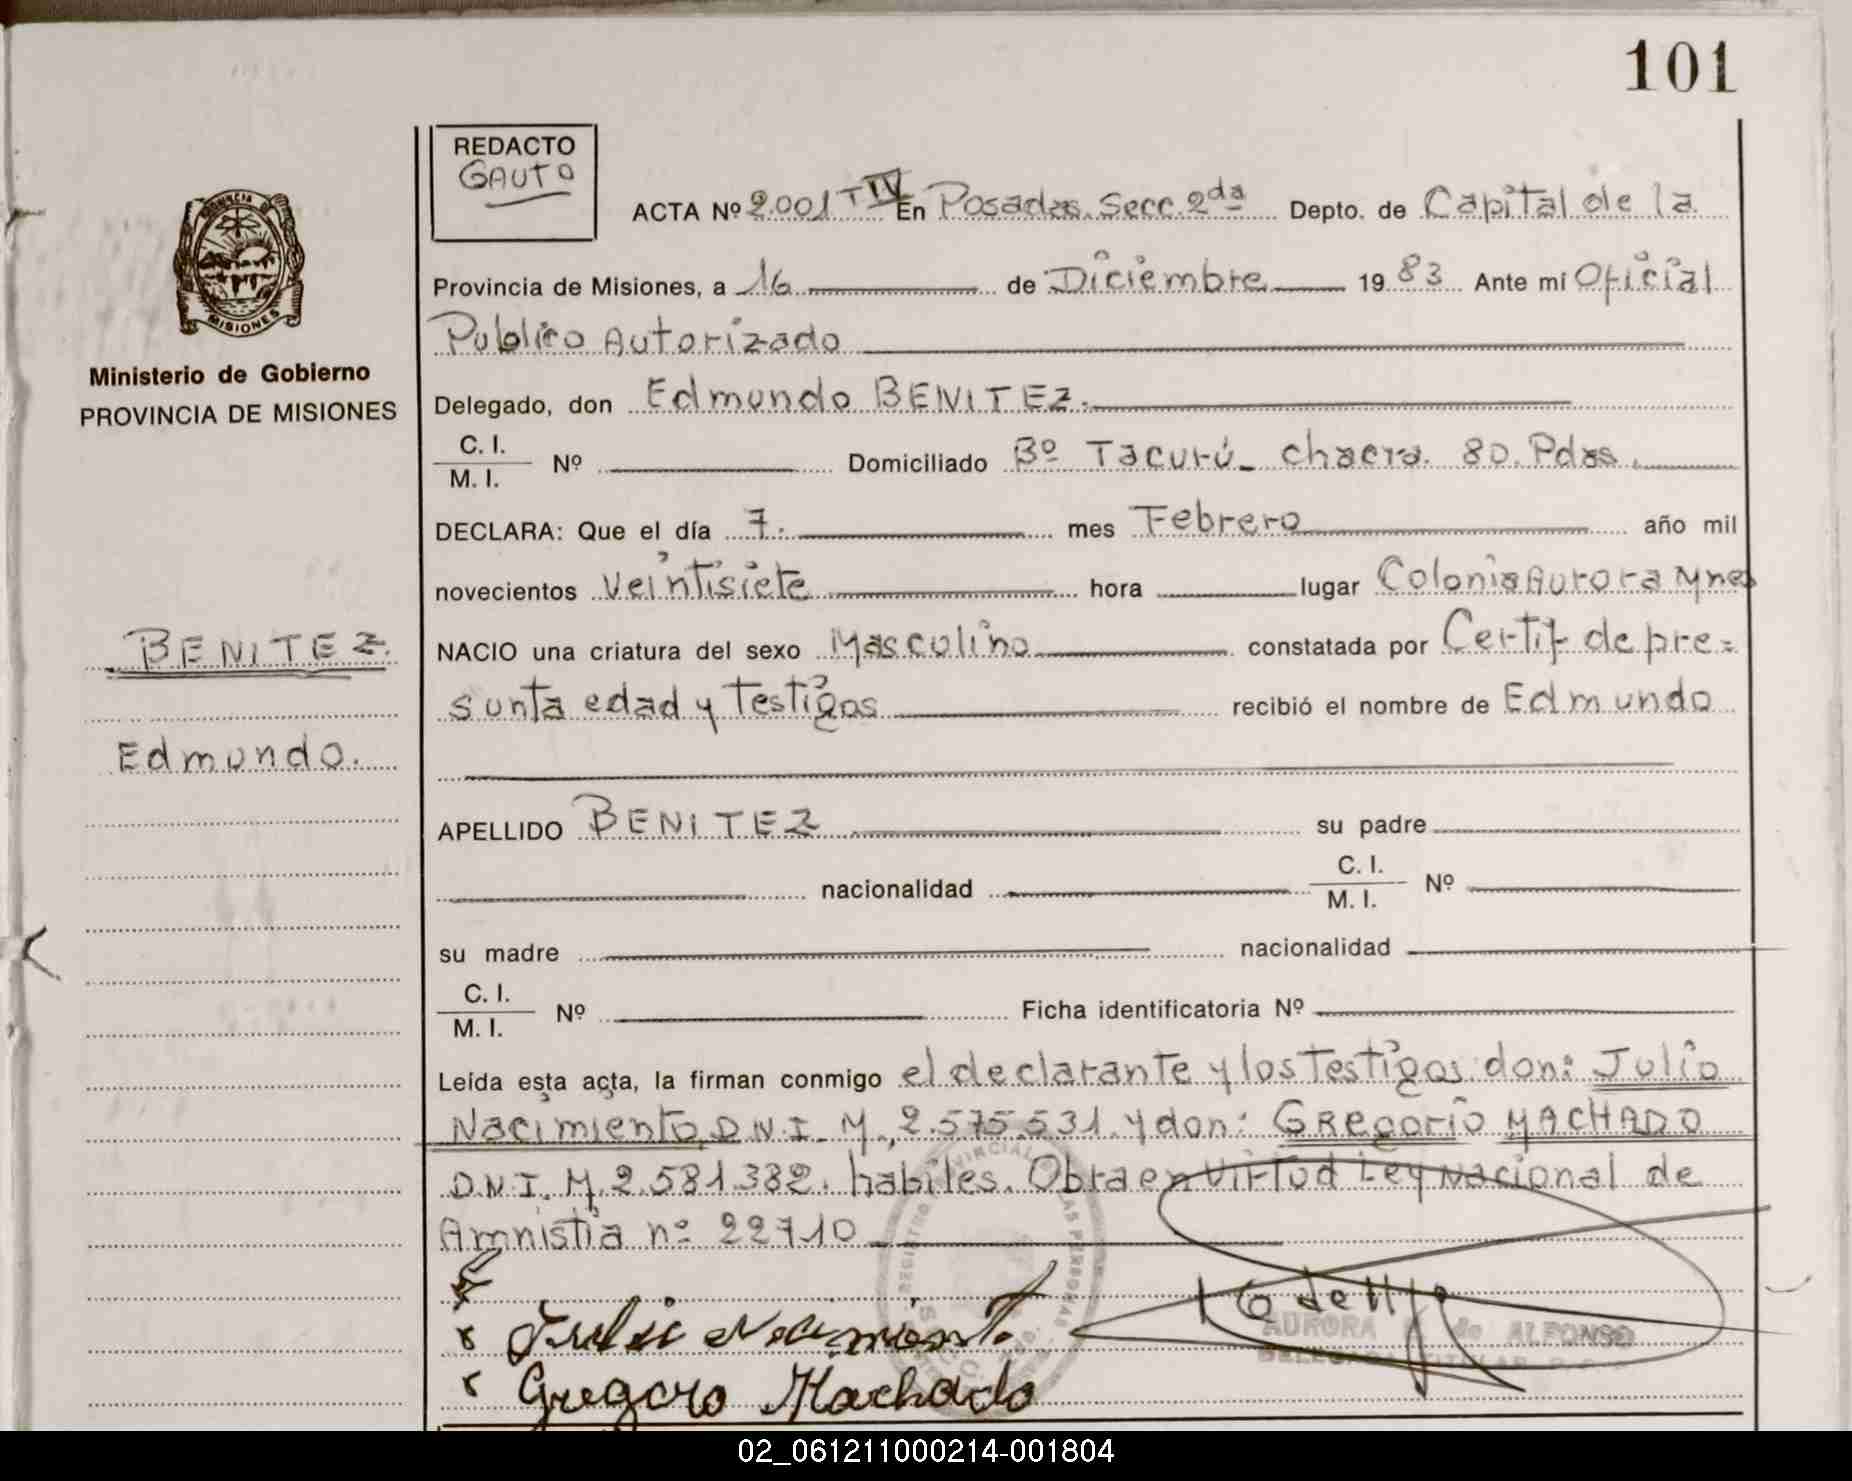 101
REDACTO
GAUTO
ACTA Nº 2.001 T IV En Posadas. Secc. 2da Depto. de Capital de la
Provincia de Misiones, a 16 de Diciembre 1983 Ante mí Oficial
Publico Autorizado
Delegado, don Edmundo BENITEZ.
C. I.
M. I. Nº Domiciliado Bº Tacurú_ chacra. 80. Pdas.
DECLARA: Que el día 7. mes Febrero año mil
novecientos veintisiete hora lugar Colonia Aurora Mnes
NACIO una criatura del sexo Masculino constatada por Certif. de pre=
sunta edad y testigos recibió el nombre de Edmundo
APELLIDO BENITEZ su padre
nacionalidad C. I.
M. I. Nº
su madre nacionalidad
C. I.
M. I. Nº Ficha identificatoria Nº
Leída esta acta, la firman conmigo el declarante y los testigos: don: Julio
Nacimiento, D.N.I. M. 2.575.531. y don: GREgorio MACHADO
D.N.I. M. 2.581.382. habiles. Obra en virtud Ley Nacional de
Amnistia nº 22710
Julio Nacimiento
Gregorio Machado
AURORA de ALFONSO
PROVINCIA DE
MISIONES
Ministerio de Gobierno
PROVINCIA DE MISIONES
BENITEZ.
Edmundo.
02_061211000214-001804